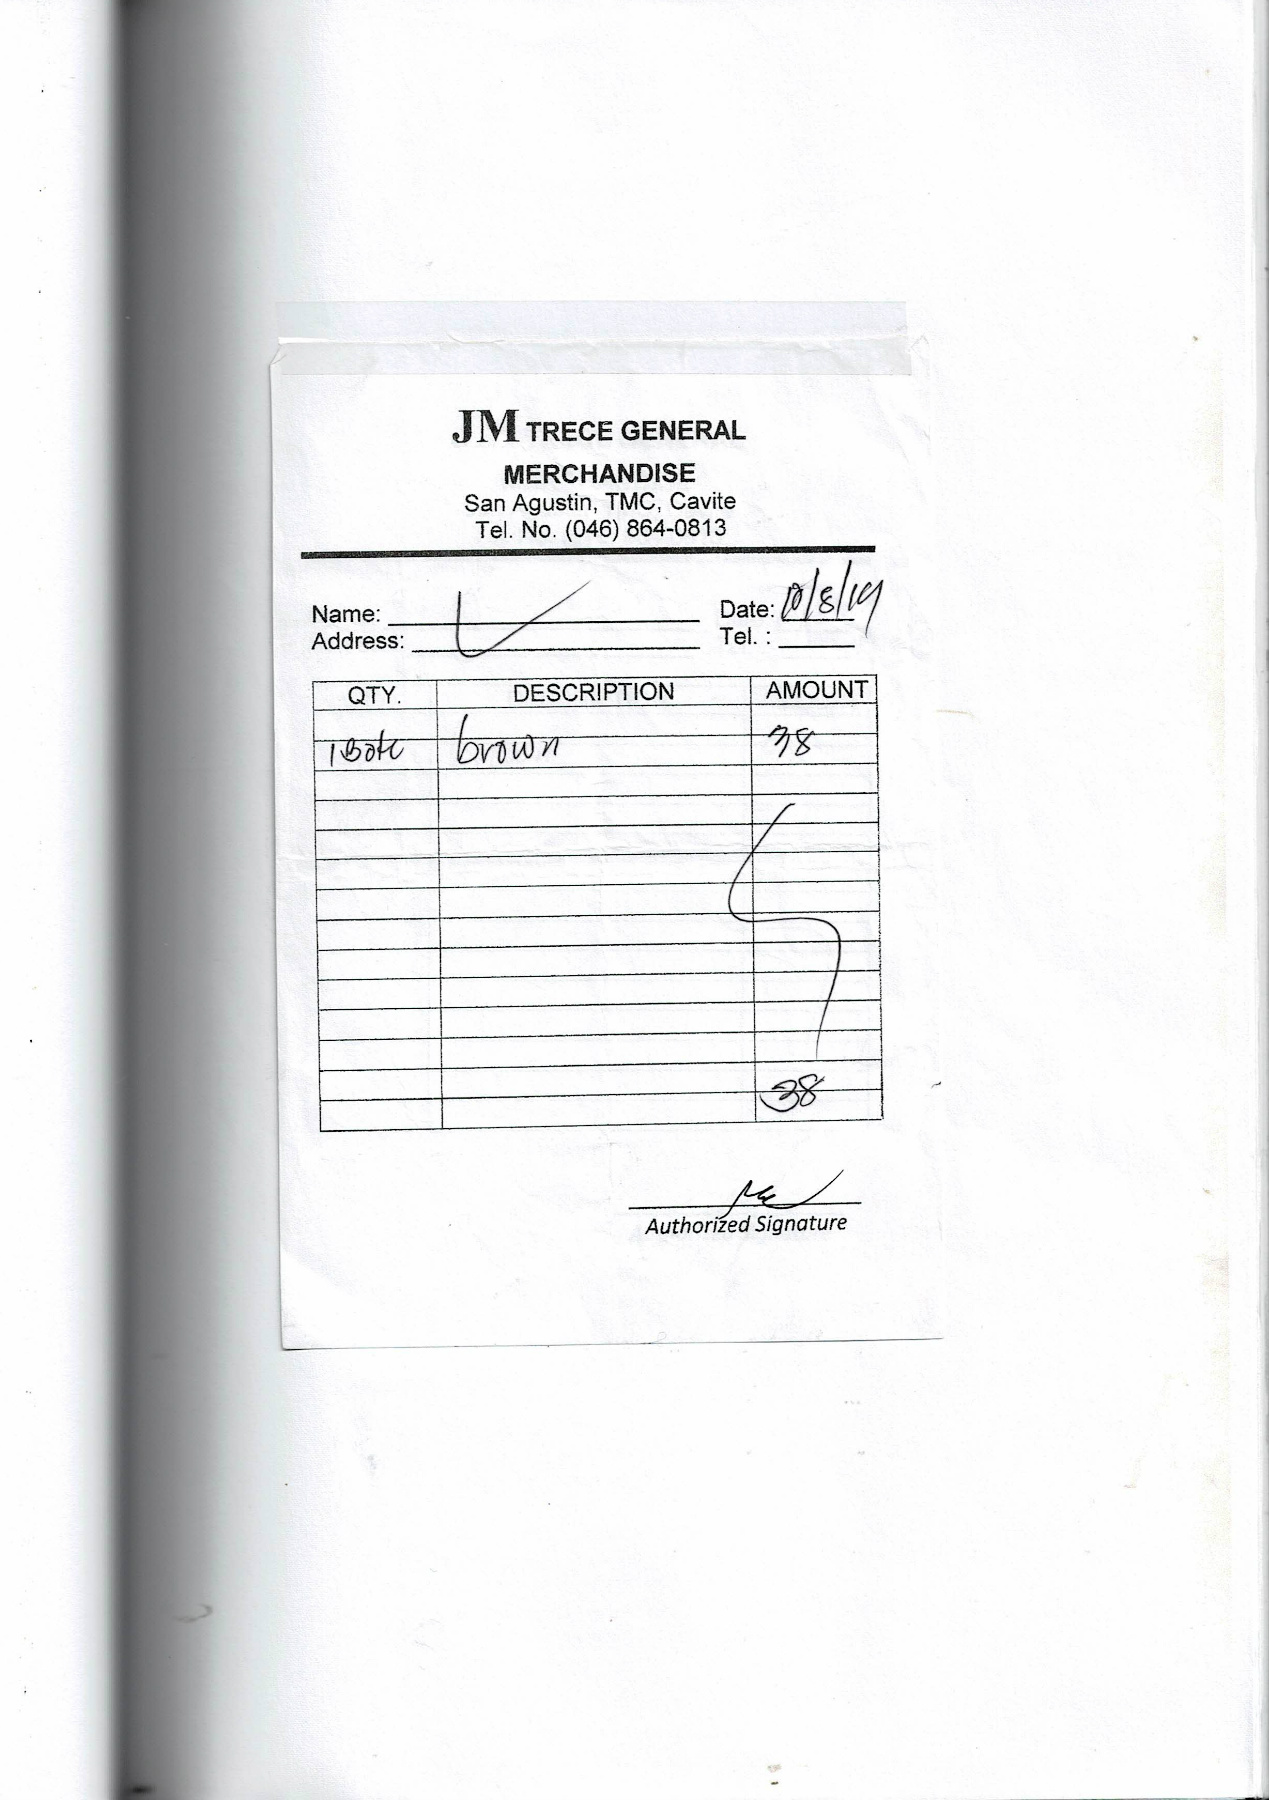 JM TRECE GENERAL
MERCHANDISE
San Agustin, TMC, Cavite
Tel. No. (046) 864-0813
Name: Date: 10/8/19
Address: Tel. :
QTY. DESCRIPTION AMOUNT
1 brown 38
38
Authorized Signature